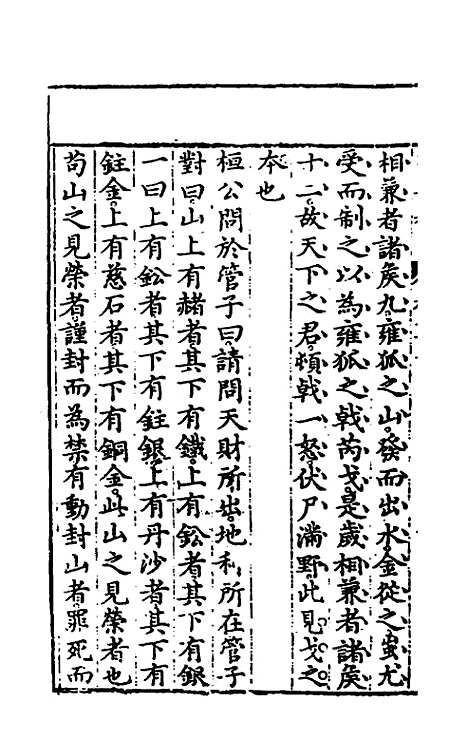 相兼者諸矦九雍狐之山發而出水金從之蚩尤
受而制之以為雍狐之戟芮戈是歲相兼者諸矦
十二故天下之君頓戟一怒伏尸滿野此見戈之
本也
桓公問於管子曰請問天財所出地利所在管子
對曰山上有赭者其下有鐵上有鈆者其下有銀
一曰上有鈆者其下有鉒銀上有丹沙者其下有
鉒金上有慈石者其下有銅金此山之見榮者也
苟山之見榮者謹封而為禁有動封山者罪死而